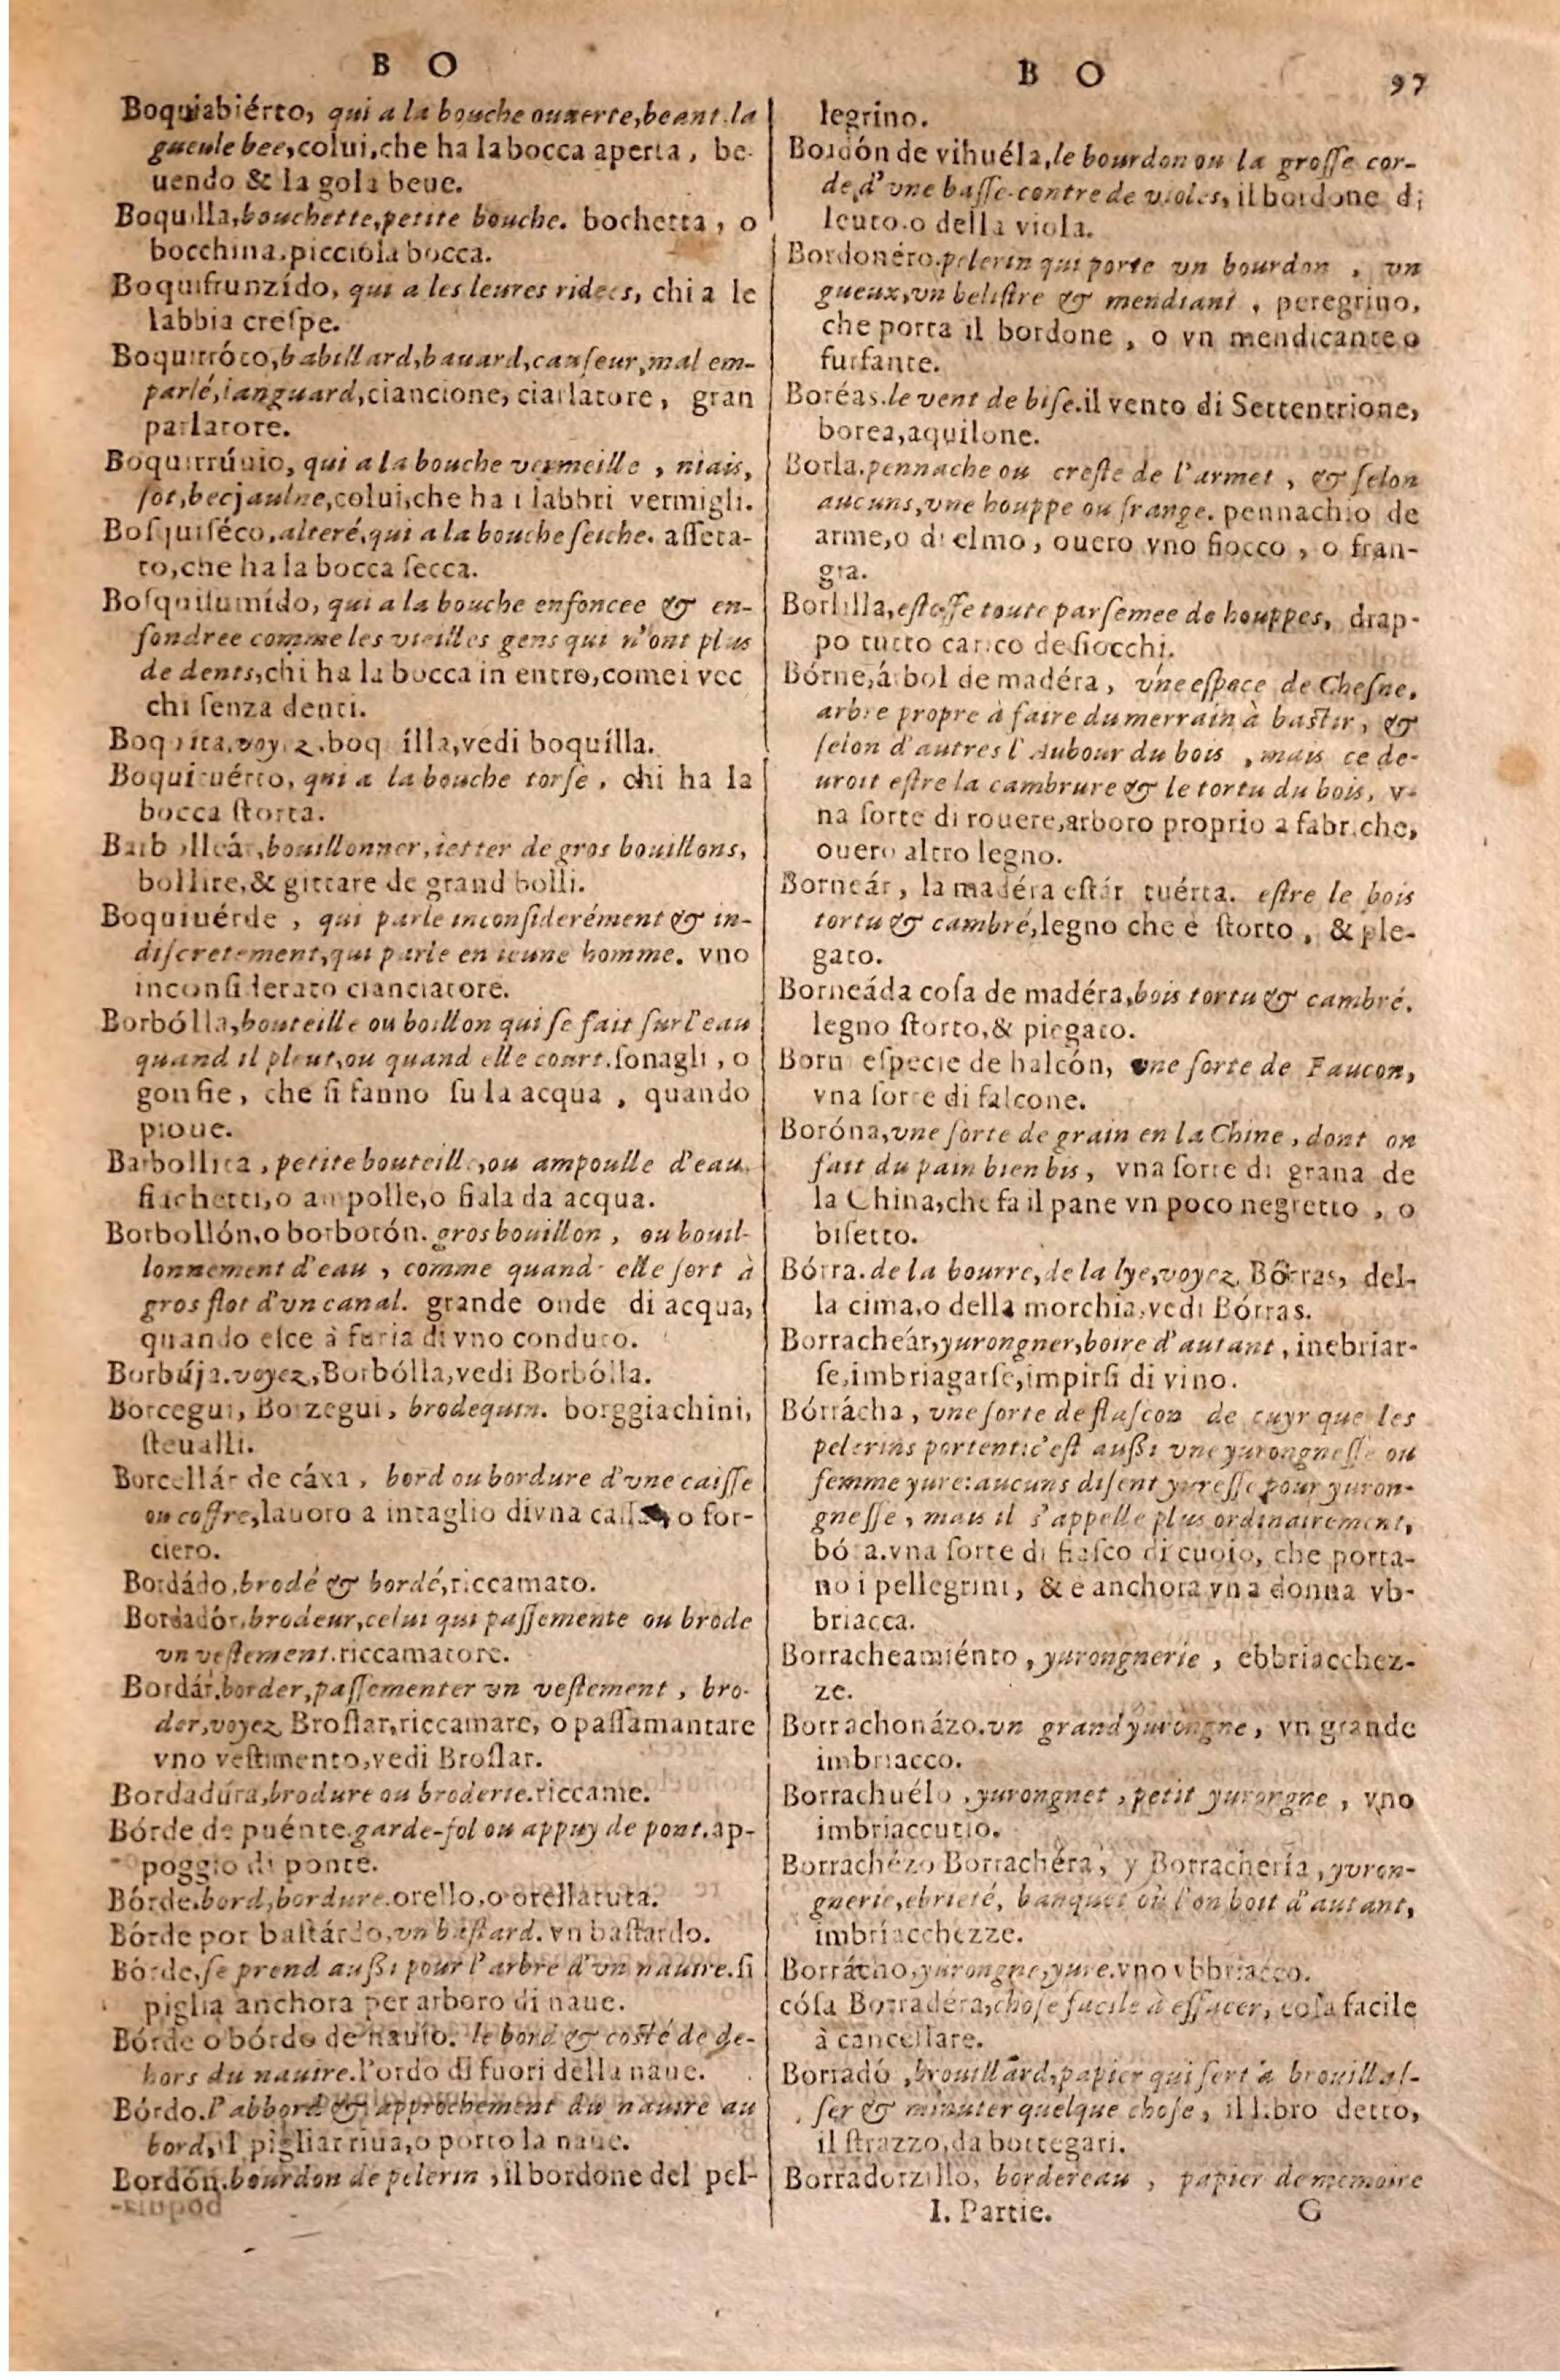 B O
Boquiabiérto, qui a la bouche ouuerte, beant la
gueule bee, colui, che ha la bocca aperta, be-
uendo & la gola beue.
Boquilla, bouchette, petite bouche. bochetta, o
bocchina, picciola bocca.
Boquifrunzído, qui a les leures ridees, chi a le
labbia creſpe.
Boquirróto, babillard, bauard, cauſeur, mal em-
parlé, languard, ciancione, ciarlatore, gran
parlatore.
Boquirrúuio, qui a la bouche vermeille, niais,
ſot, becjaulne, colui, che ha i labbri vermigli.
Boſquiſéco, alteré, qui a la bouche ſeiche. aſſeta-
to, che ha la bocca ſecca.
Boſquiſumído, qui a la bouche enfoncee & en-
fondree comme les vieilles gens qui n'ont plus
de dents, chi ha la bocca in entro, come i vec
chi ſenza denti.
Boquita. voyez. boquílla, vedi boquílla.
Boquituérto, qui a la bouche torſe, chi ha la
bocca ſtorta.
Barbolleár, bouillonner, ietter de gros bouillons,
bollire, & gittare de grand bolli.
Boquiuérde, qui parle inconſiderément & in-
diſcretement, qui parle en ieune homme. vno
inconſiderato cianciatore.
Borbólla, bouteille ou boillon qui ſe fait ſur l'eau
quand il pleut, ou quand elle court. ſonagli, o
gonfie, che ſi fanno ſu la acqua, quando
pioue.
Barbollita, petite bouteille, ou ampoulle d'eau,
fiachetti, o ampolle, o fiala da acqua.
Borbollón, o borbotón. gros bouillon, ou bouil-
lonnement d'eau, comme quand elle ſort à
gros flot d'vn canal. grande onde di acqua,
quando eſce à furia di vno conduto.
Borbúja. voyez, Borbólla, vedi Borbólla.
Borcegui, Borzegui, brodequin. borggiachini,
ſteualli.
Borcellár de cáxa, bord ou bordure d'vne caiſſe
ou coffre, lauoro a intaglio divna caſſa, o for-
ciero.
Bordádo, brodé & bordé, riccamato.
Bordadór, brodeur, celui qui paſſemente ou brode
vn veſtement. riccamatore.
Bordár, border, paſſementer vn veſtement, bro-
der, voyez Broſlar, riccamare, o paſſamantare
vno veſtimento, vedi Broſlar.
Bordadúra, brodure ou broderie. riccame.
Bórde de puénte. garde-fol ou appuy de pont. ap-
poggio di ponte.
Bórde. bord, bordure. orello, o orellatuta.
Bórde por baſtárdo, vn baſtard. vn baſtardo.
Bórde, ſe prend auſſi pour l'arbre d'vn nauire. ſi
piglia anchora per arboro di naue.
Bórde o bórdo de nauío. le bord & coſté de de-
hors du nauire. l'ordo di fuori della naue.
Bórdo. l'abbord & approchement du nauire au
bord, il pigliar riua, o porto la naue.
Bordón. bourdon de pelerin, il bordone del pel-
B O
97
legrino.
Bordón de vihuéla, le bourdon ou la groſſe cor-
de d'vne baſſe-contre de violes, il bordone di
leuto. o della viola.
Bordonéro. pelerin qui porte vn bourdon, vn
gueux, vn beliſtre & mendiant, peregrino,
che porta il bordone, o vn mendicante o
furfante.
Boréas. le vent de biſe. il vento di Settentrione,
borea, aquilone.
Borla. pennache ou creſte de l'armet, & ſelon
aucuns, vne houppe ou frange. pennachio de
arme, o di elmo, ouero vno fiocco, o fran-
gia.
Borlilla, eſtoffe toute parſemee de houppes, drap-
po tutto carico de fiocchi.
Bórne, árbol de madéra, vne eſpece de Cheſne,
arbre propre à faire du merrain à baſtir, &
ſelon d'autres l'Aubour du bois, mais ce de-
uroit eſtre la cambrure & le tortu du bois, v-
na ſorte di rouere, arboro proprio a fabriche,
ouero altro legno.
Borneár, la madéra eſtár tuérta. eſtre le bois
tortu & cambré, legno che è ſtorto, & ple-
gato.
Borneáda coſa de madéra, bois tortu & cambré.
legno ſtorto, & piegato.
Borni eſpecie de halcón, vne ſorte de Faucon,
vna ſorte di falcone.
Boróna, vne ſorte de grain en la Chine, dont on
fait du pain bien bis, vna ſorte di grana de
la China, che fa il pane vn poco negretto, o
biſetto.
Bórra. de la bourre, de la lye, voyez Bórras, del-
la cima, o della morchia, vedi Bórras.
Borracheár, yurongner, boire d'autant, inebriar-
ſe, imbriagarſe, impirſi di vino.
Bórrácha, vne ſorte de flaſcon de cuyr que les
pelerins portent: c'eſt auſſi vne yurongneſſe ou
femme yure: aucuns diſent yureſſe pour yuron-
gneſſe, mais il s'appelle plus ordinairement,
bóta. vna ſorte di fiaſco di cuoio, che porta-
no i pellegrini, & è anchora vna donna vb-
briacca.
Borracheamiénto, yurongnerie, ebbriacchez-
ze.
Borrachonázo. vn grand yurongne, vn grande
imbriacco.
Borrachuélo, yurongnet, petit yurongne, vno
imbriaccutio.
Borrachézo Borrachéra, y Borrachería, yuron-
gnerie, ebrieté, banquet où l'on boit d'autant,
imbriacchezze.
Borrácho, yurongne, yure. vno vbbriacco.
cóſa Borradéra, choſe facile à effacer, coſa facile
à cancellare.
Borradó, brouillard, papier qui ſert à brouillaſ-
ſer & minuter quelque choſe, il libro detto,
il ſtrazzo, da bottegari.
Borradorzillo, bordereau, papier de memoire
I. Partie. G